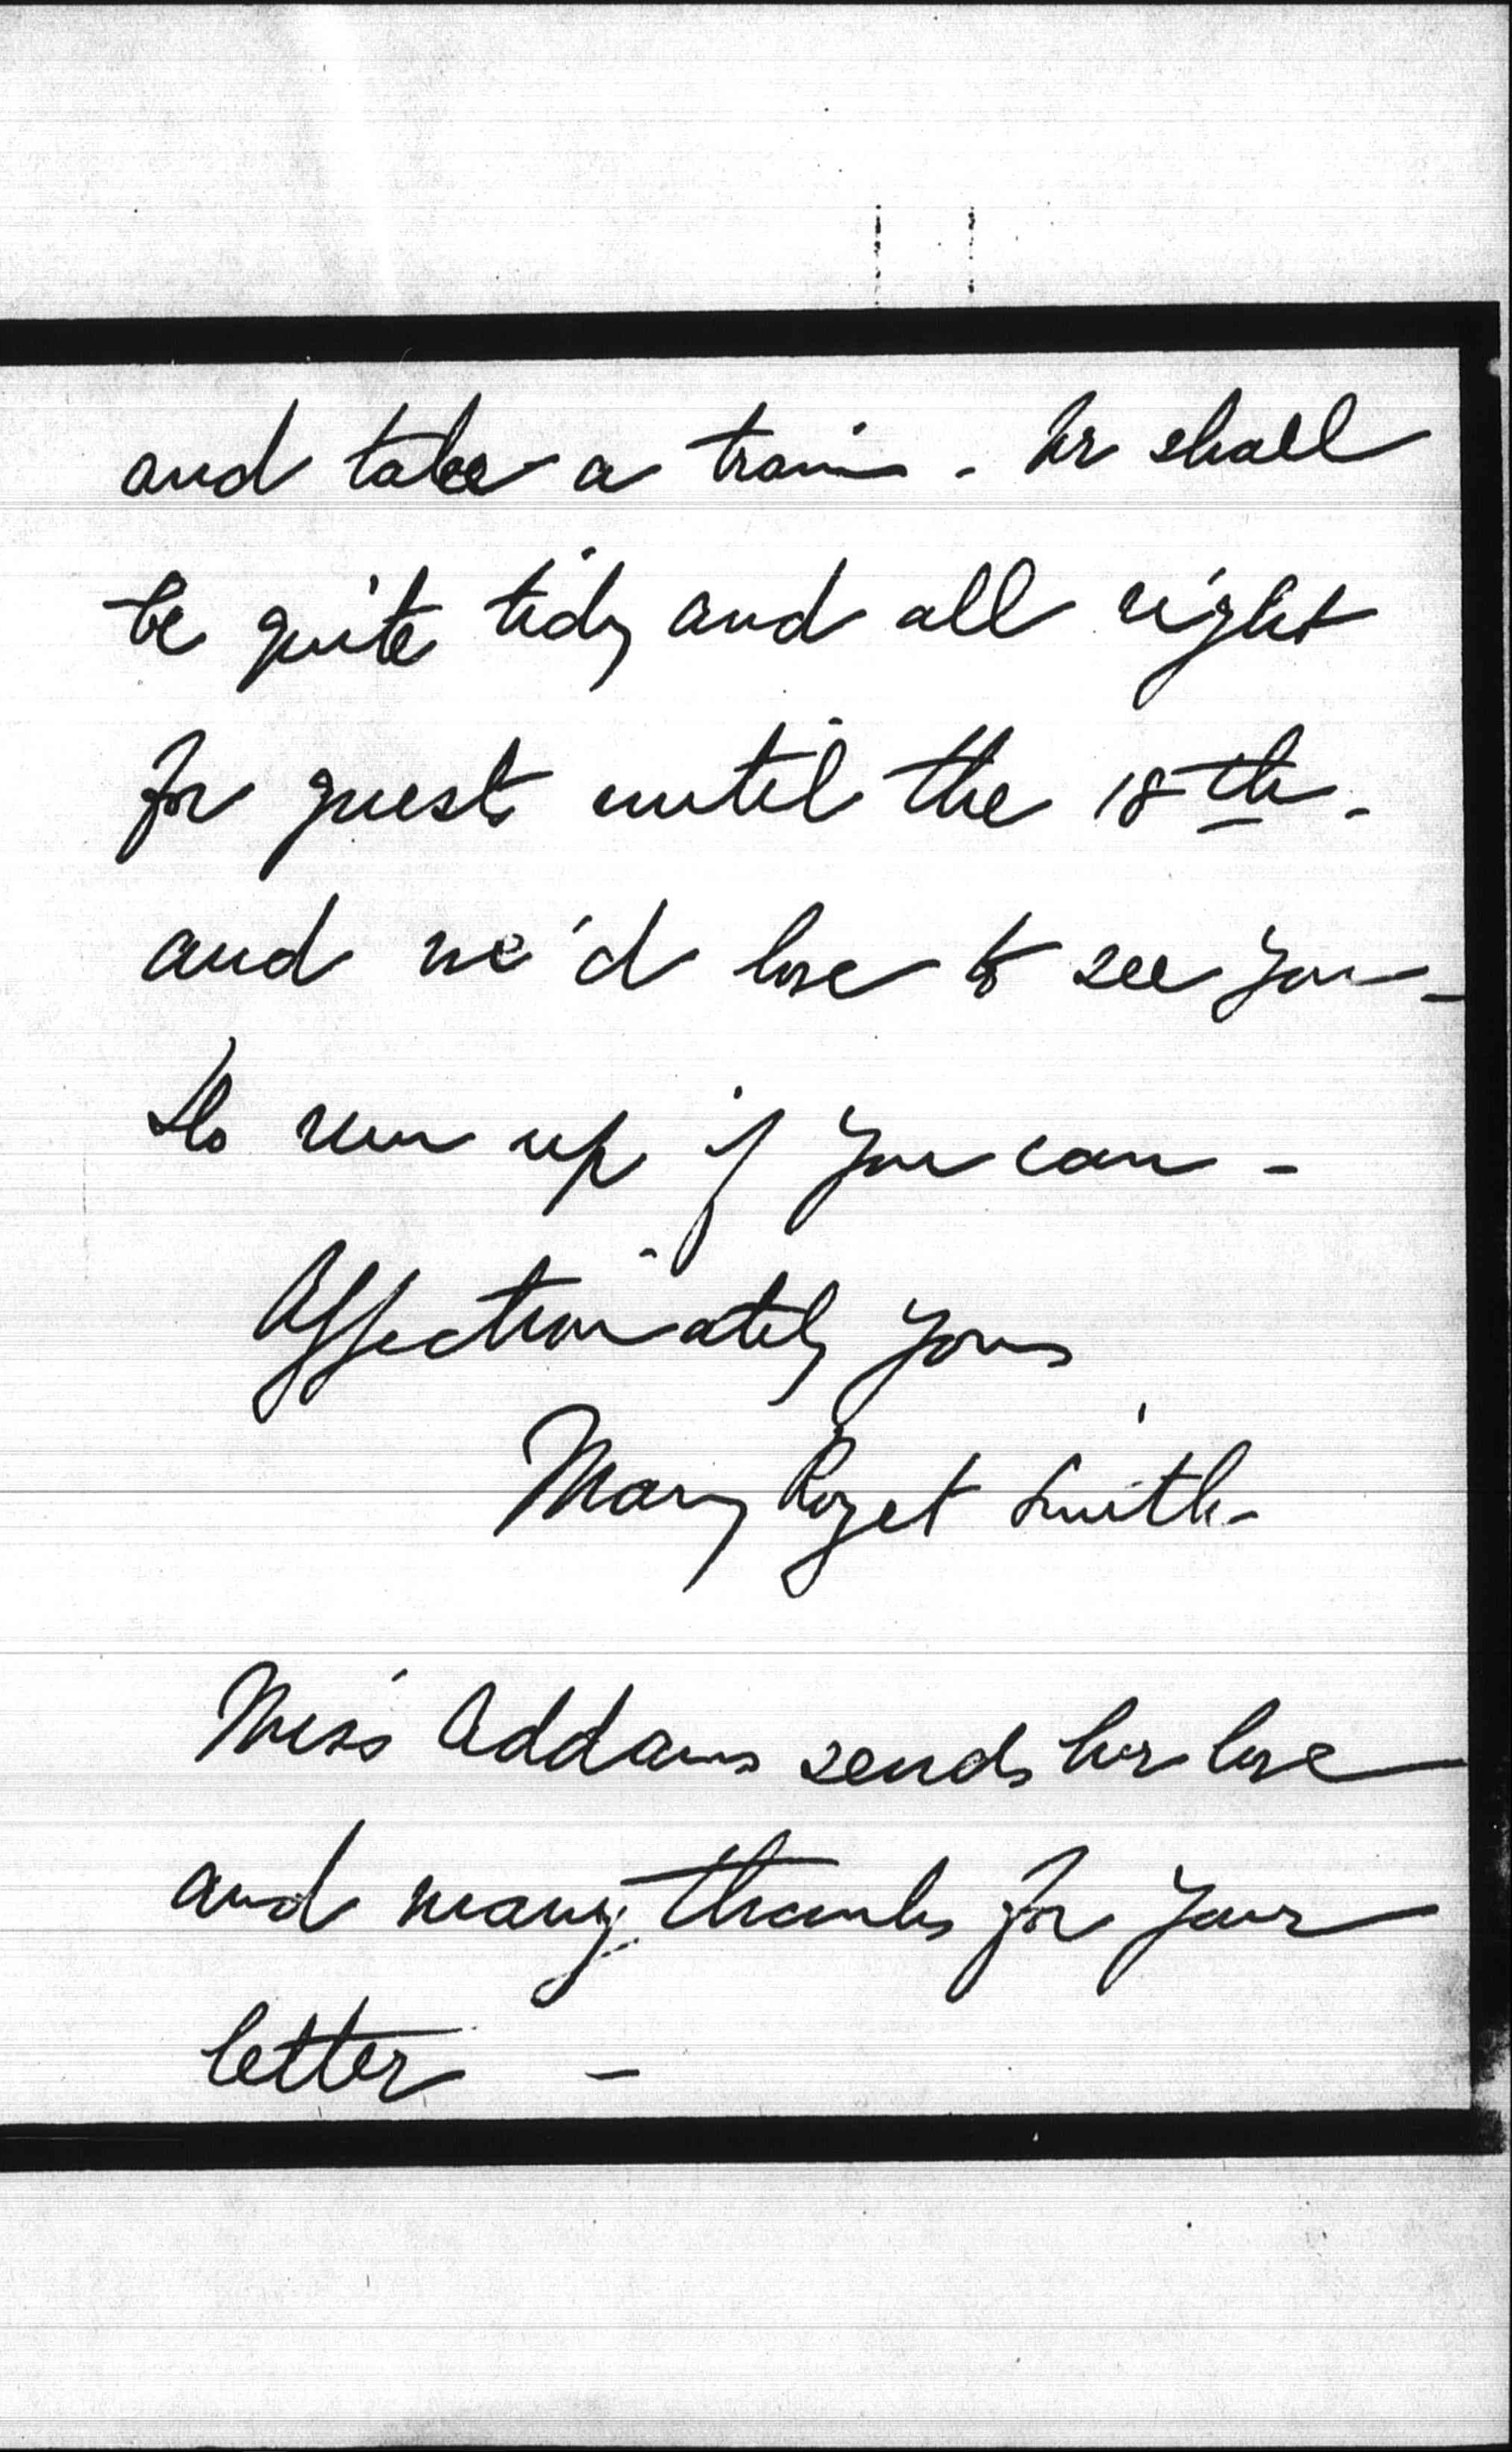 and take a train - We shall
be quite tidy and all right
for guests until the 18th -
and we'd love to see you -
Do run up if you can -
Affectionately yours
Mary Rozet Smith -
Miss Addams sends her love
and many thanks for your
letter -